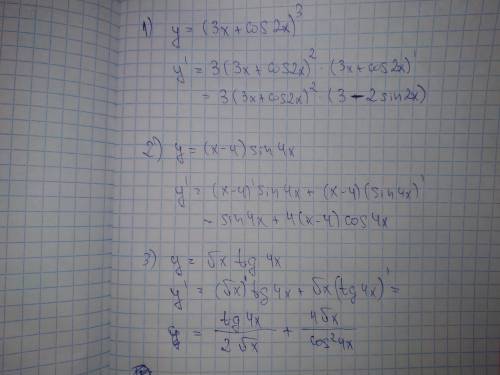 1) y = (3x + cos2x)³
y' = 3(3x + cos2x)² · (3x + cos2x)'
= 3(3x + cos2x)² · (3 - 2sin2x)
2) y = (x-4)sin4x
y' = (x-4)'sin4x + (x-4)(sin4x)'
= sin4x + 4(x-4)cos4x
3) y = √x tg 4x
y' = (√x)' tg4x + √x(tg4x)' =
= tg4x / 2√x + 4√x / cos²4x